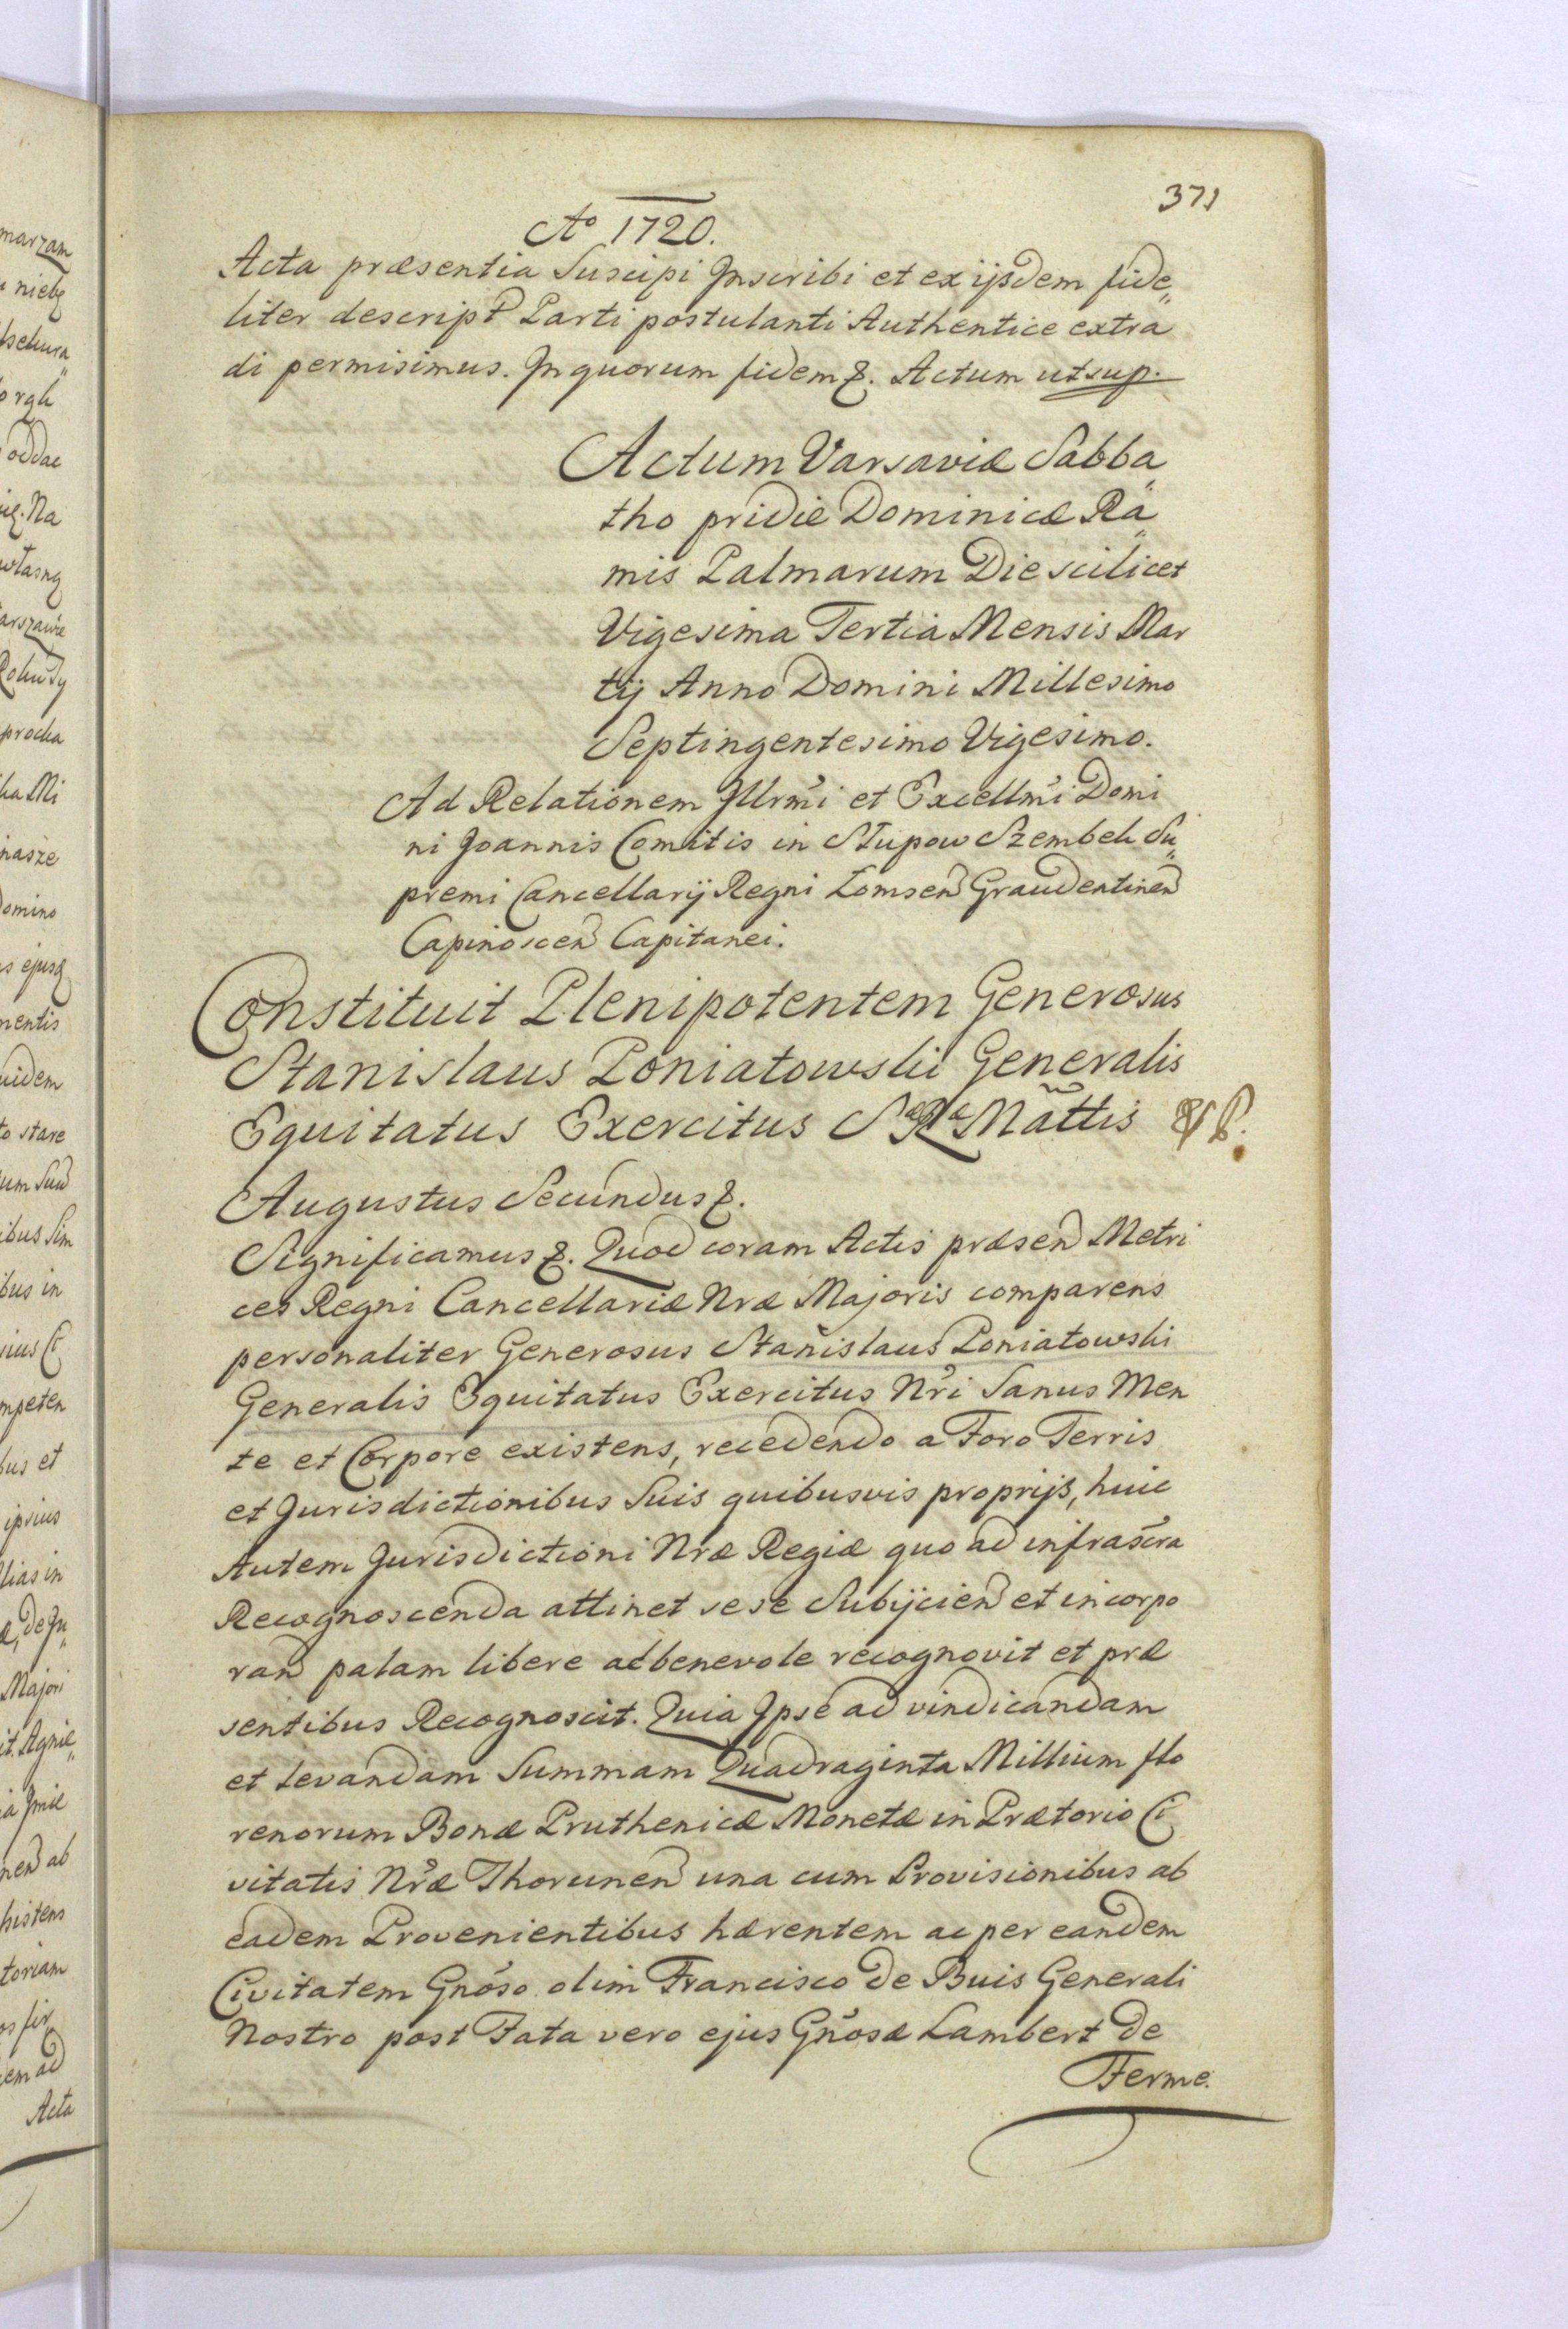 371
Aº 1720.
Acta præsentia Suscipi Inscribi et ex ijsdem fide„
liter descript Parti postulanti Authentice extra
di permisimus. In quorum fidem &. Actum ut sup.
Actum Varsaviæ Sabba„
tho pridie Dominicæ Ra„
mis Palmarum Die scilicet
Vigesima Tertia Mensis Mar
tij Anno Domini Millesimo
Septingentesimo Vigesimo.
Ad Relationem Illrmi et Excellmi Domi
ni Joannis Comitis in Słupow Szembek Su„
premi Cancellarij Regni Łomsen Graudentinen
Capinoscen Capitanei.
Constituit Plenipotentem Generosus
Stanislaus Poniatowski Generalis
Equitatus Exercitus Sæ Ræ Mattis
Augustus Secundus &.
Significamus &. Quod coram Actis præsen Metri
ces Regni Cancellariæ Nræ Majoris comparens
personaliter Generosus Stanislaus Poniatowski
Generalis Equitatus Exercitus Nri Sanus Men
te et Corpore existens, recedendo a Foro Terris
et Jurisdictionibus Suis quibusvis proprijs, huic
Autem Jurisdictioni Nræ Regiæ quo ad infrascra
Recognoscenda attinet sese Subijcien et incorpo
ran palam libere acbenevole recognovit et præ
sentibus Recognoscit. Quia Ipse ad vindicandam
et levandam Summam Quadraginta Millium flo
renorum Bonæ Pruthenicæ Monetæ in Prætorio Ci
vitatis Nræ Thorunen una cum Provisionibus ab
eadem Provenientibus hærentem ac per eandem
Civitatem Gnoso olim Francisco de Buis Generali
Nostro post Fata vero ejus Gnosæ Lambert de
Ferme.
marzam
niebę
oddac
Na
własną
arszawie
procha
ha Mi
nasze
Domino
s ejusq
mentis
uidem
to stare
um Suu
ibus Sim
bus in
mpeten
bus et
ipsius
lias in
æ, De In„
Majori
it. Agnie„
nen ab
histens
toriam
em ad
Acta